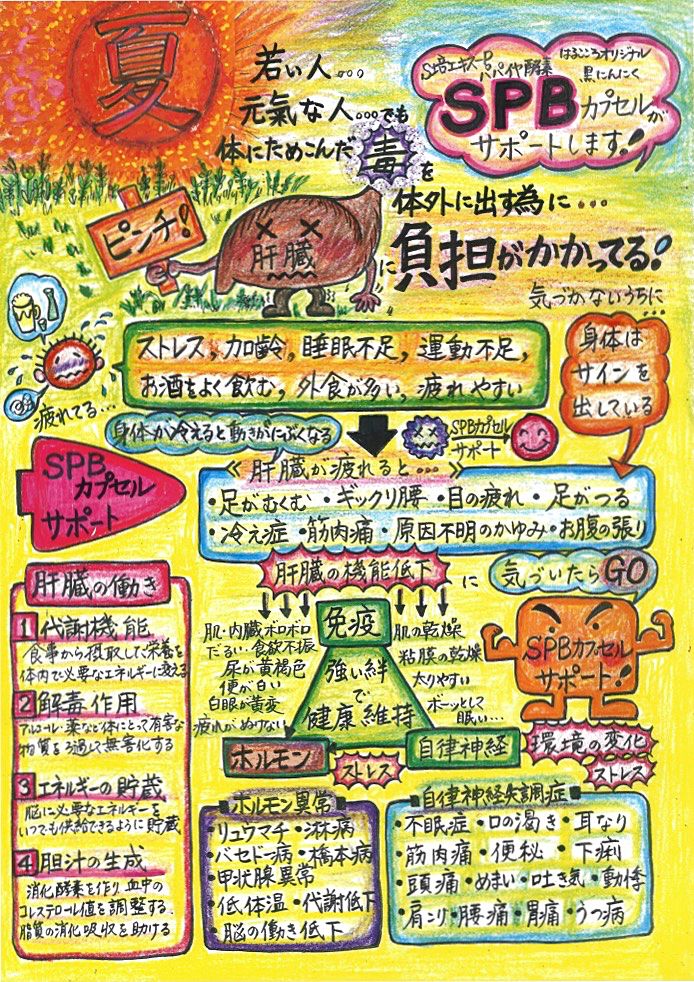 夏
若い人…
元氣な人…でも
体にためこんだ毒を
体外に出す為に…
肝臓に負担がかかってる!
気づかないうちに…
S培エキスB
パパイヤ酵素
はるこころオリジナル
黒にんにく
SPBカプセルが
サポートします!
ピンチ!
疲れてる…
ストレス,加齢,睡眠不足,運動不足,
お酒をよく飲む,外食が多い,疲れやすい
身体は
サインを
出している
身体が冷えると動きがにぶくなる
SPBカプセル
サポート
SPB
カプセル
サポート
《肝臓が疲れると…》
・足がむくむ ・ギックリ腰 ・目の疲れ ・足がつる
・冷え症 ・筋肉痛 ・原因不明のかゆみ・お腹の張り
肝臓の機能低下に
気づいたらGO
肝臓の働き
1 代謝機能
食事から摂取した栄養を
体内で必要なエネルギーに変える
2 解毒作用
アルコール・薬など体にとって有害な
物質をろ過して無害化する
3 エネルギーの貯蔵
脳に必要なエネルギーを
いつでも供給できるように貯蔵
4 胆汁の生成
消化酵素を作り血中の
コレステロール値を調整する.
脂質の消化吸収を助ける
肌・内臓ボロボロ
だるい・食欲不振
尿が黄褐色
便が白い
白眼が黄変
疲れがぬけない
免疫
強い絆
で
健康維持
肌の乾燥
粘膜の乾燥
太りやすい
ボーッとして
眠い…
SPBカプセル
サポート!
ホルモン
ストレス
自律神経
環境の変化
ストレス
ホルモン異常
・リュウマチ・淋病
・バセドー病・橋本病
・甲状腺異常
・低体温 ・代謝低下
・脳の働き低下
自律神経失調症
・不眠症・口の渇き・耳なり
・筋肉痛・便秘・下痢
・頭痛・めまい・吐き気・動悸
・肩こり・腰痛・胃痛・うつ病